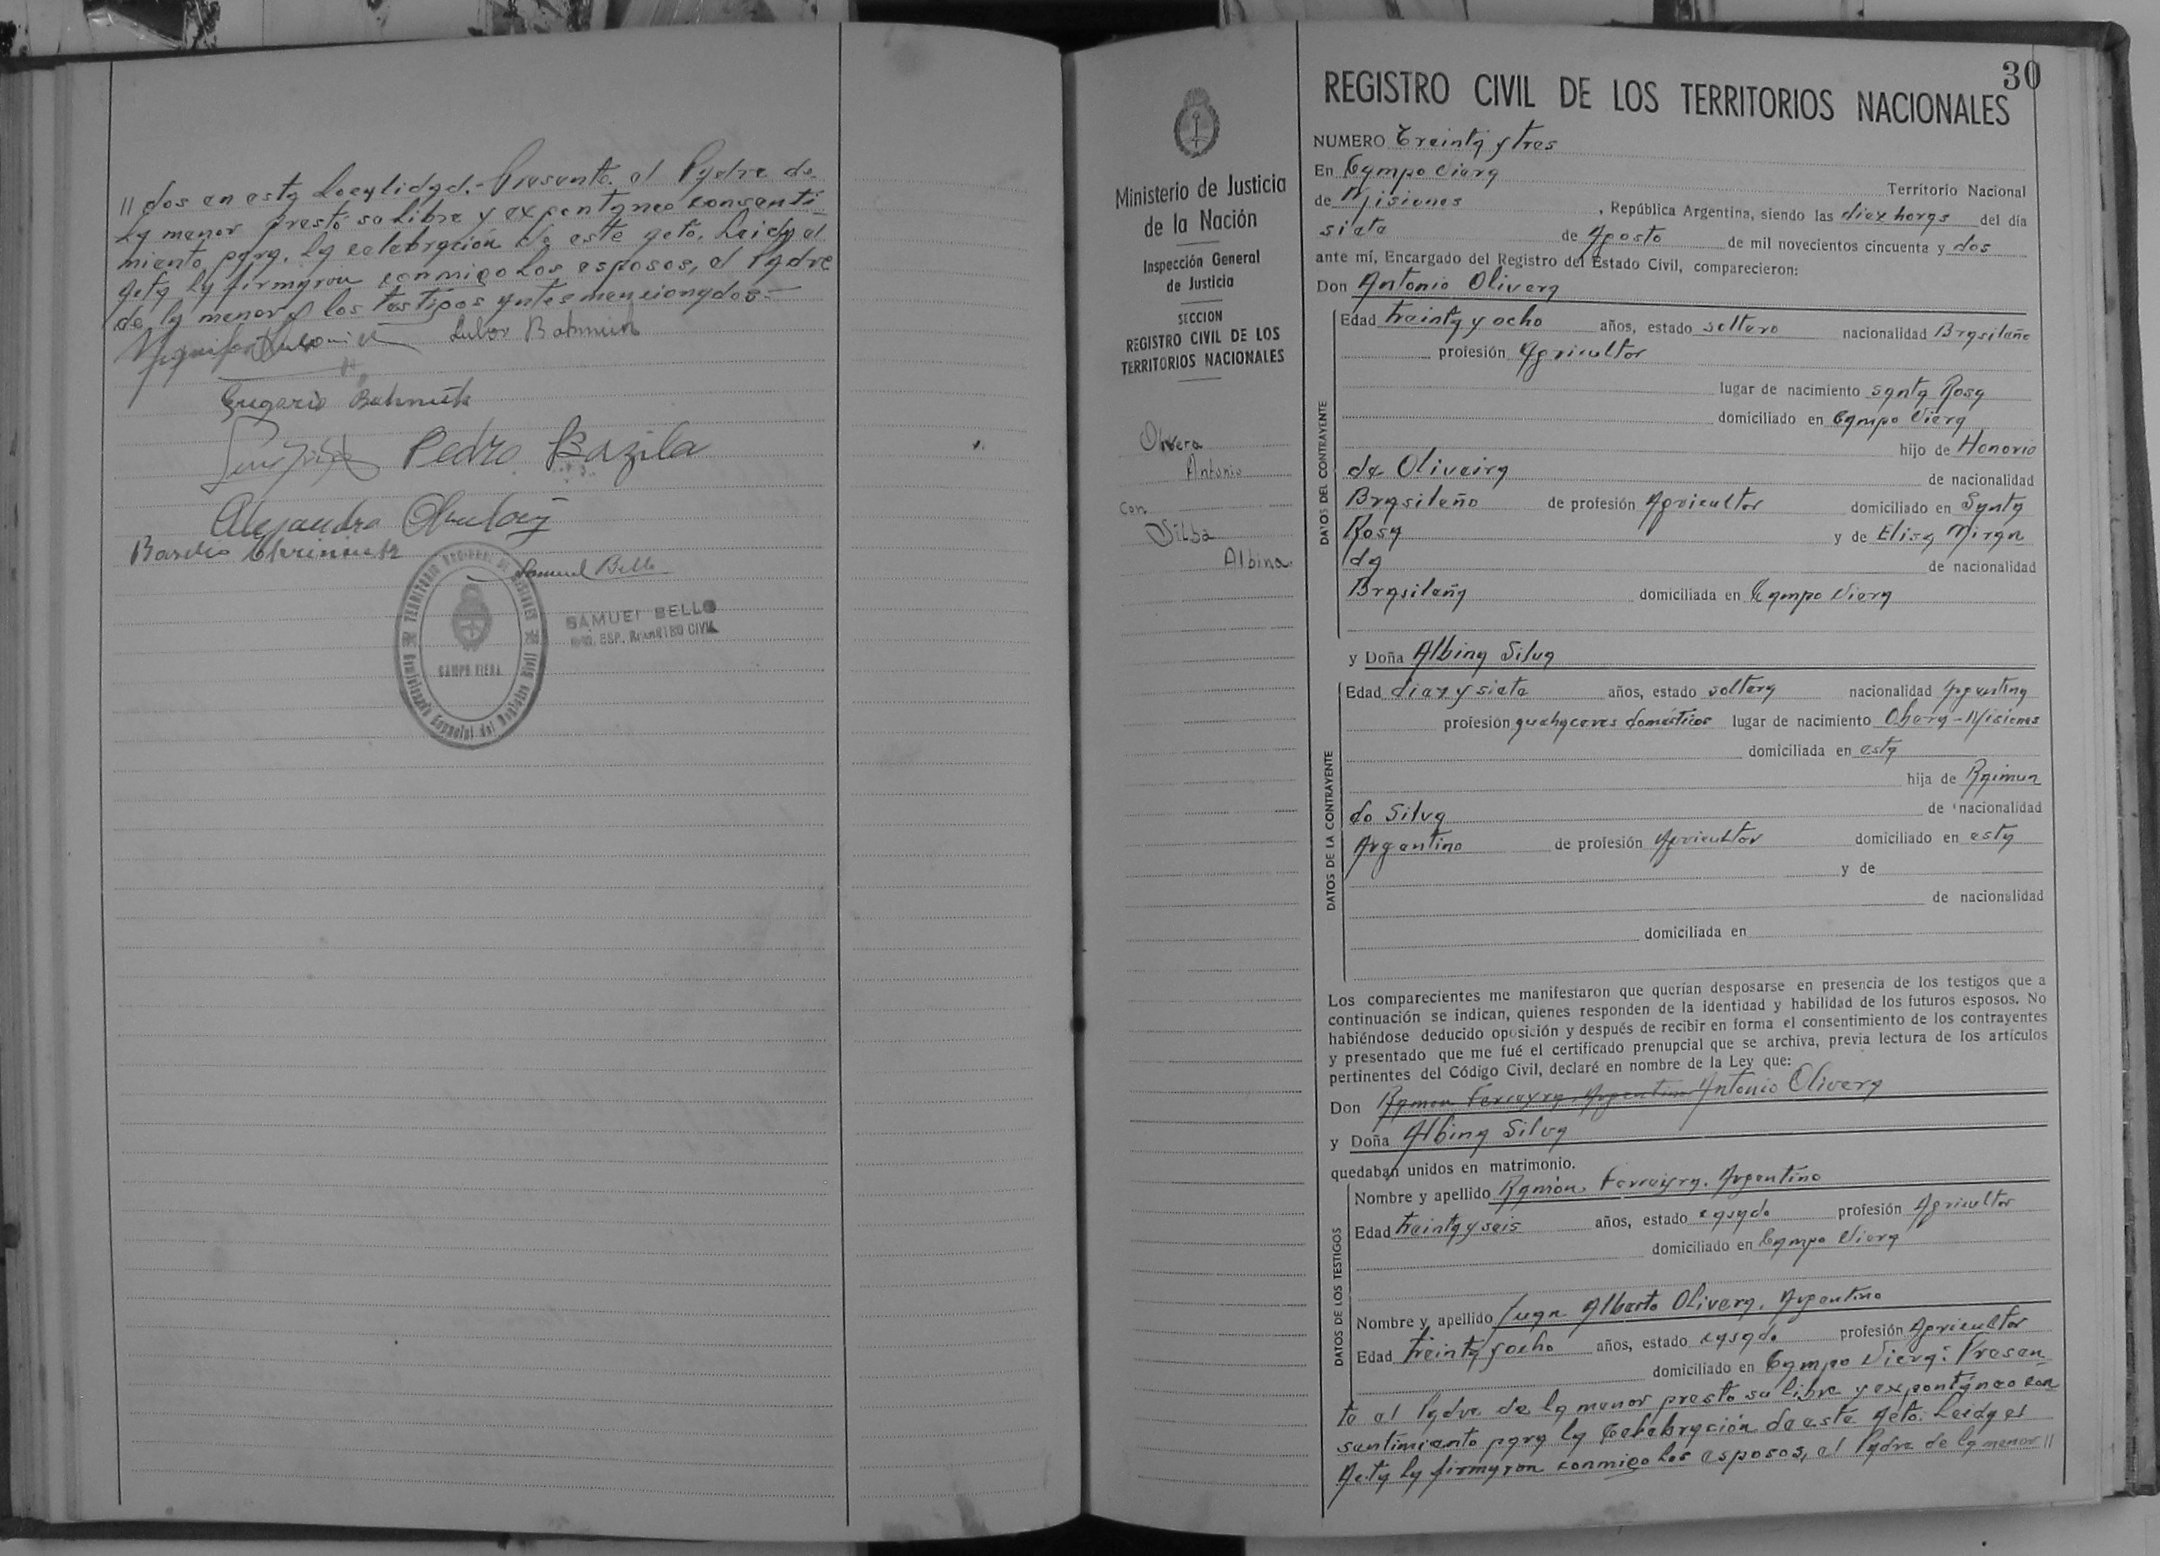 // dos en esta Localidad.- Presente el Padre de
La menor prestó su libre y expontaneo consenti-
miento para la celebración de este acto. Leida el
Acta la firmaron conmigo Los esposos, el Padre
de la menor y los testigos antes mencionados.-
Lubor Bahniuk
Gregorio Bahniuk
Pedro Bazila
Alejandro
Basilio
Samuel Bello
TERRITORIO NACIONAL DE MISIONES
CAMPO VIERA
SAMUEL BELLO
ENC. ESP. REGISTRO CIVIL
Ministerio de Justicia
de la Nación
Inspección General
de Justicia
SECCION
REGISTRO CIVIL DE LOS
TERRITORIOS NACIONALES
Olivera
Antonio
con
Silba
Albina
30
REGISTRO CIVIL DE LOS TERRITORIOS NACIONALES
NUMERO Treinta y tres
En Campo Viera Territorio Nacional
de Misiones , República Argentina, siendo las diez horas del día
siete de Agosto de mil novecientos cincuenta y dos
ante mí, Encargado del Registro del Estado Civil, comparecieron:
Don Antonio Olivera
DATOS DEL CONTRAYENTE
Edad treinta y ocho años, estado soltero nacionalidad Brasileño
profesión Agricultor
lugar de nacimiento Santa Rosa
domiciliado en Campo Viera
hijo de Honorio
de Oliveira de nacionalidad
Brasileño de profesión Agricultor domiciliado en Santa
Rosa y de Elisa Miran
da de nacionalidad
Brasileña domiciliada en Campo Viera
y Doña Albina Silva
DATOS DE LA CONTRAYENTE
Edad diez y siete años, estado soltera nacionalidad Argentina
profesión quehaceres domésticos lugar de nacimiento Obera - Misiones
domiciliada en esta
hija de Raimun
do Silva de nacionalidad
Argentino de profesión Agricultor domiciliado en esta
y de
de nacionalidad
domiciliada en
Los comparecientes me manifestaron que querían desposarse en presencia de los testigos que a
continuación se indican, quienes responden de la identidad y habilidad de los futuros esposos. No
habiéndose deducido oposición y después de recibir en forma el consentimiento de los contrayentes
y presentado que me fué el certificado prenupcial que se archiva, previa lectura de los artículos
pertinentes del Código Civil, declaré en nombre de la Ley que:
Don Ramon Ferreyra. Argentino Antonio Olivera
y Doña Albina Silva
quedaban unidos en matrimonio.
DATOS DE LOS TESTIGOS
Nombre y apellido Ramón Ferreyra. Argentino
Edad treinta y seis años, estado casado profesión Agricultor
domiciliado en Campo Viera
Nombre y apellido Juan Alberto Olivera. Argentino
Edad treinta y ocho años, estado casado profesión Agricultor
domiciliado en Campo Viera: Presen
te el Padre de la menor prestó su libre y expontáneo con
sentimiento para la Celebración de este Acto. Leida el
Acta la firmaron conmigo Los esposos, el Padre de la menor //